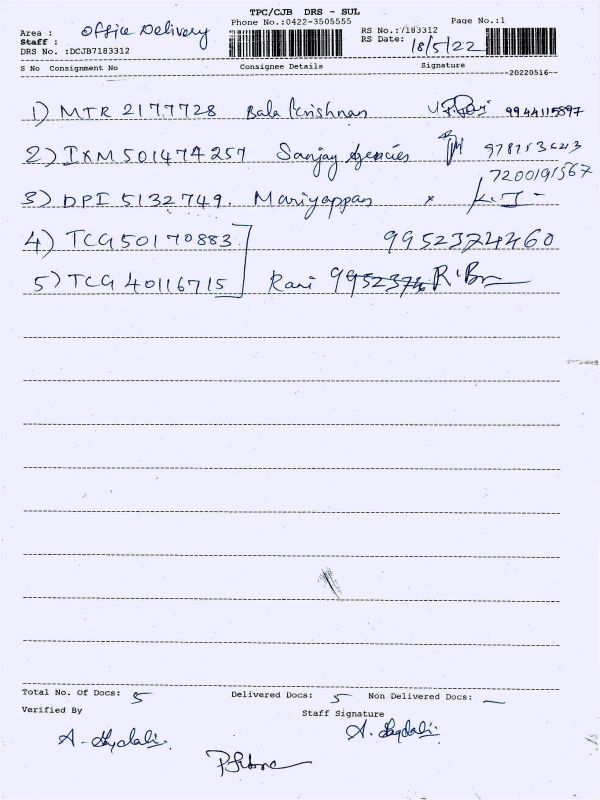 TPC/CJB DRS - SUL
Phone No.:0422-3505555
Page No.:1
Area : Office Delivery
RS No.:7183312
Staff :
RS Date: 18/5/22
DRS No. :DCJB7183312
S No Consignment No Consignee Details Signature
20220516
1) MTR 2177728 Bala Krishnan 9944115897
2) IXM 501474257 Sanjay Agencies
7200191567
3) DPI 5132749. Mariyappan x
4) TCG 50170883 9952374460
5) TCG 40116715 Rani 9952374
Total No. Of Docs: 5 Delivered Docs: 5 Non Delivered Docs: —
Verified By Staff Signature